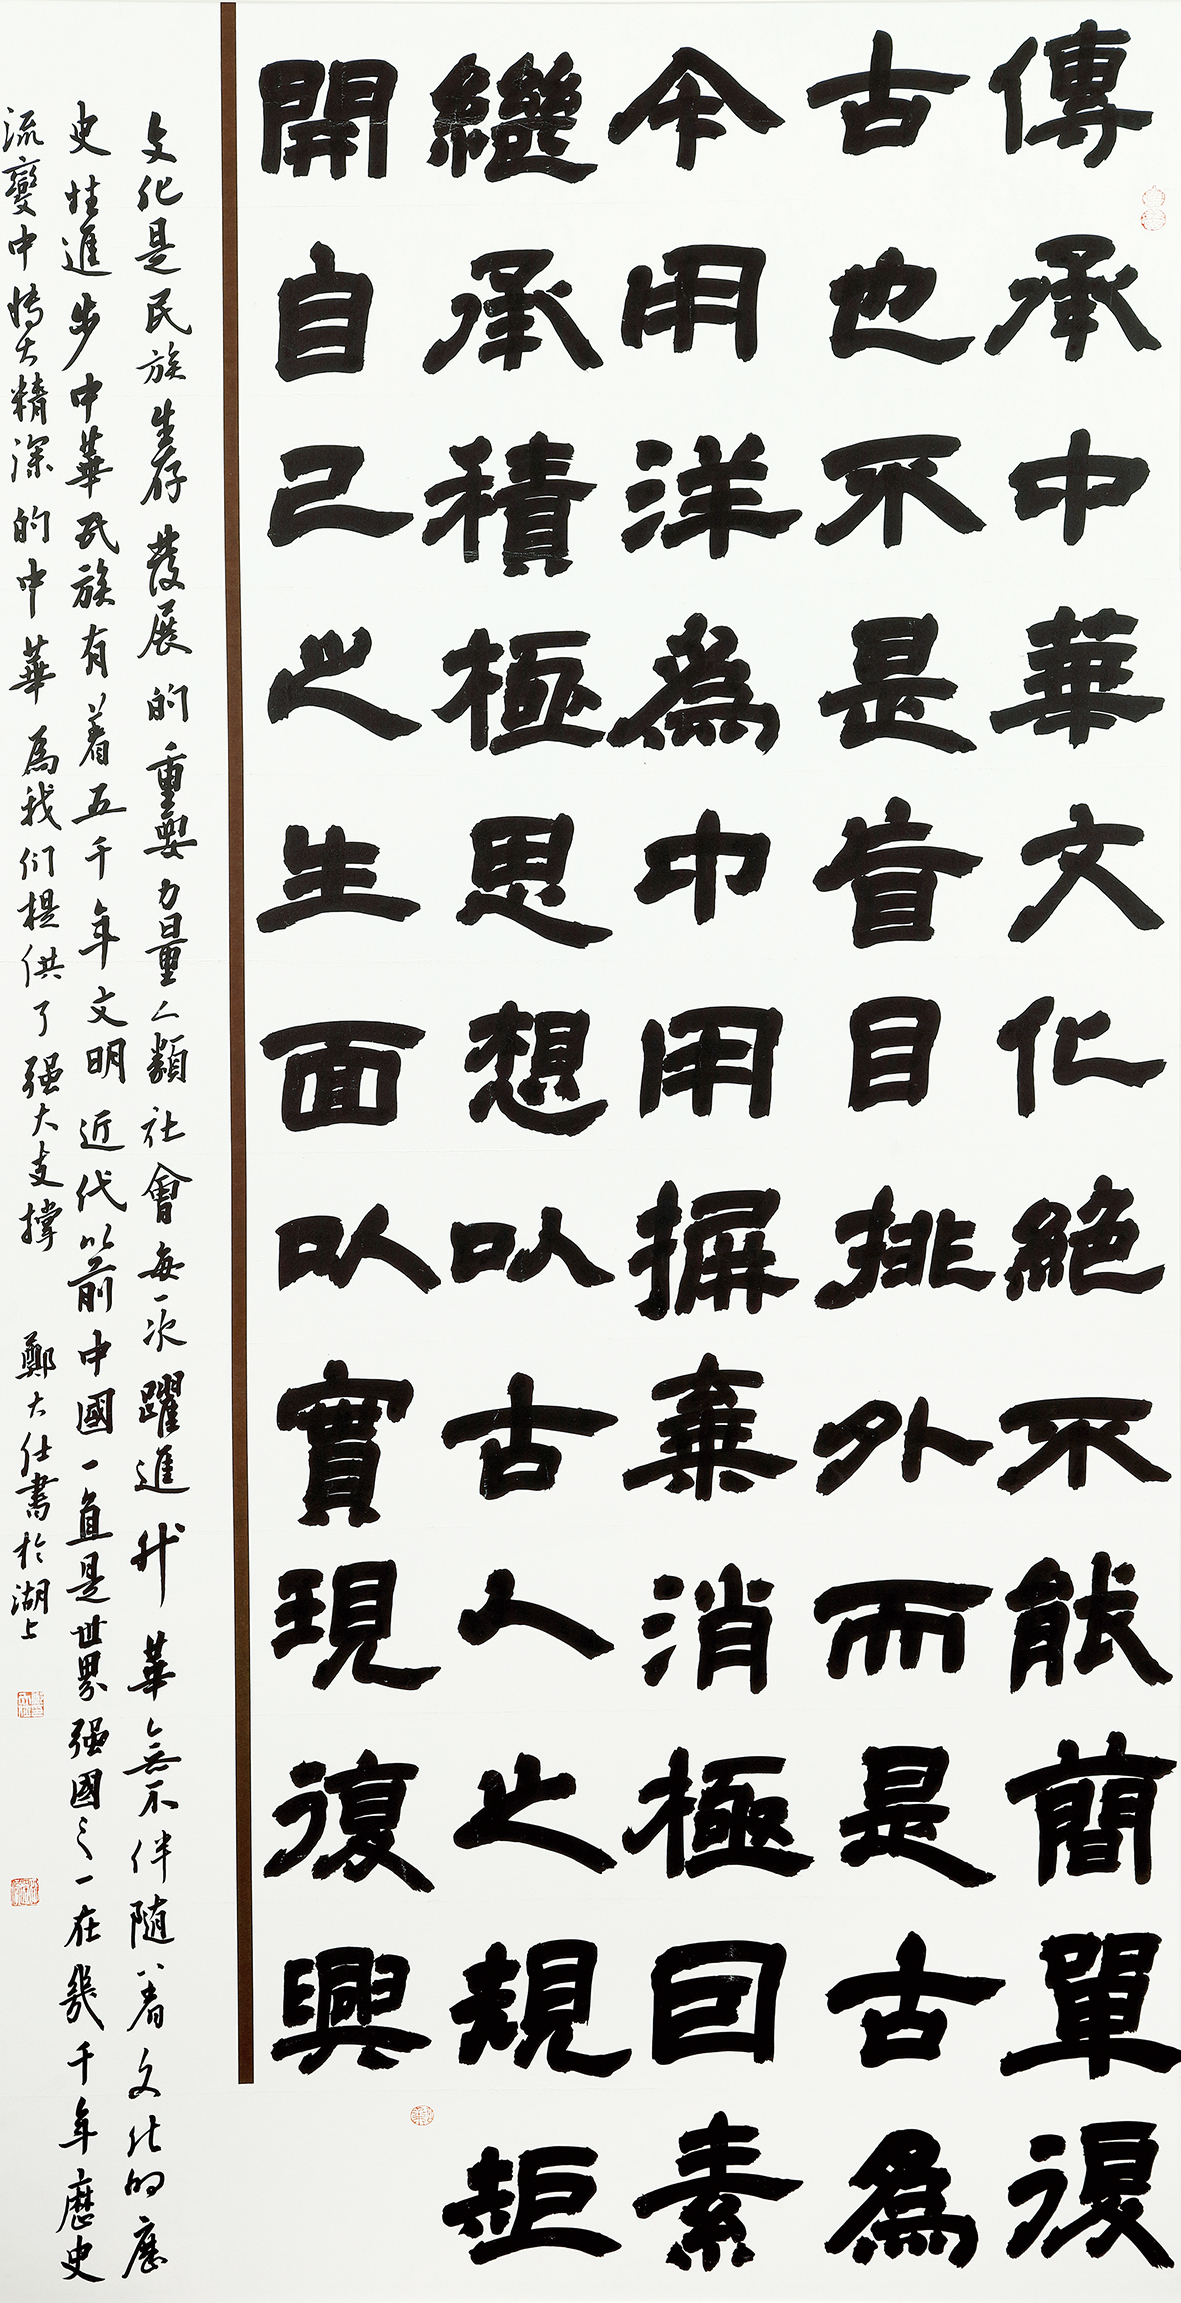 傳承中華文化絕不能簡單復
古也不是盲目排外而是古為
今用洋為中用摒棄消極因素
繼承積極思想以古人之規矩
開自己之生面以實現復興
文化是民族生存發展的重要力量人類社會每一次躍進升華無不伴隨着文化的歷
史性進步中華民族有着五千年文明近代以前中國一直是世界强國之一在幾千年歷史
流變中博大精深的中華為我們提供了强大支撑 鄭大仕書於湖上